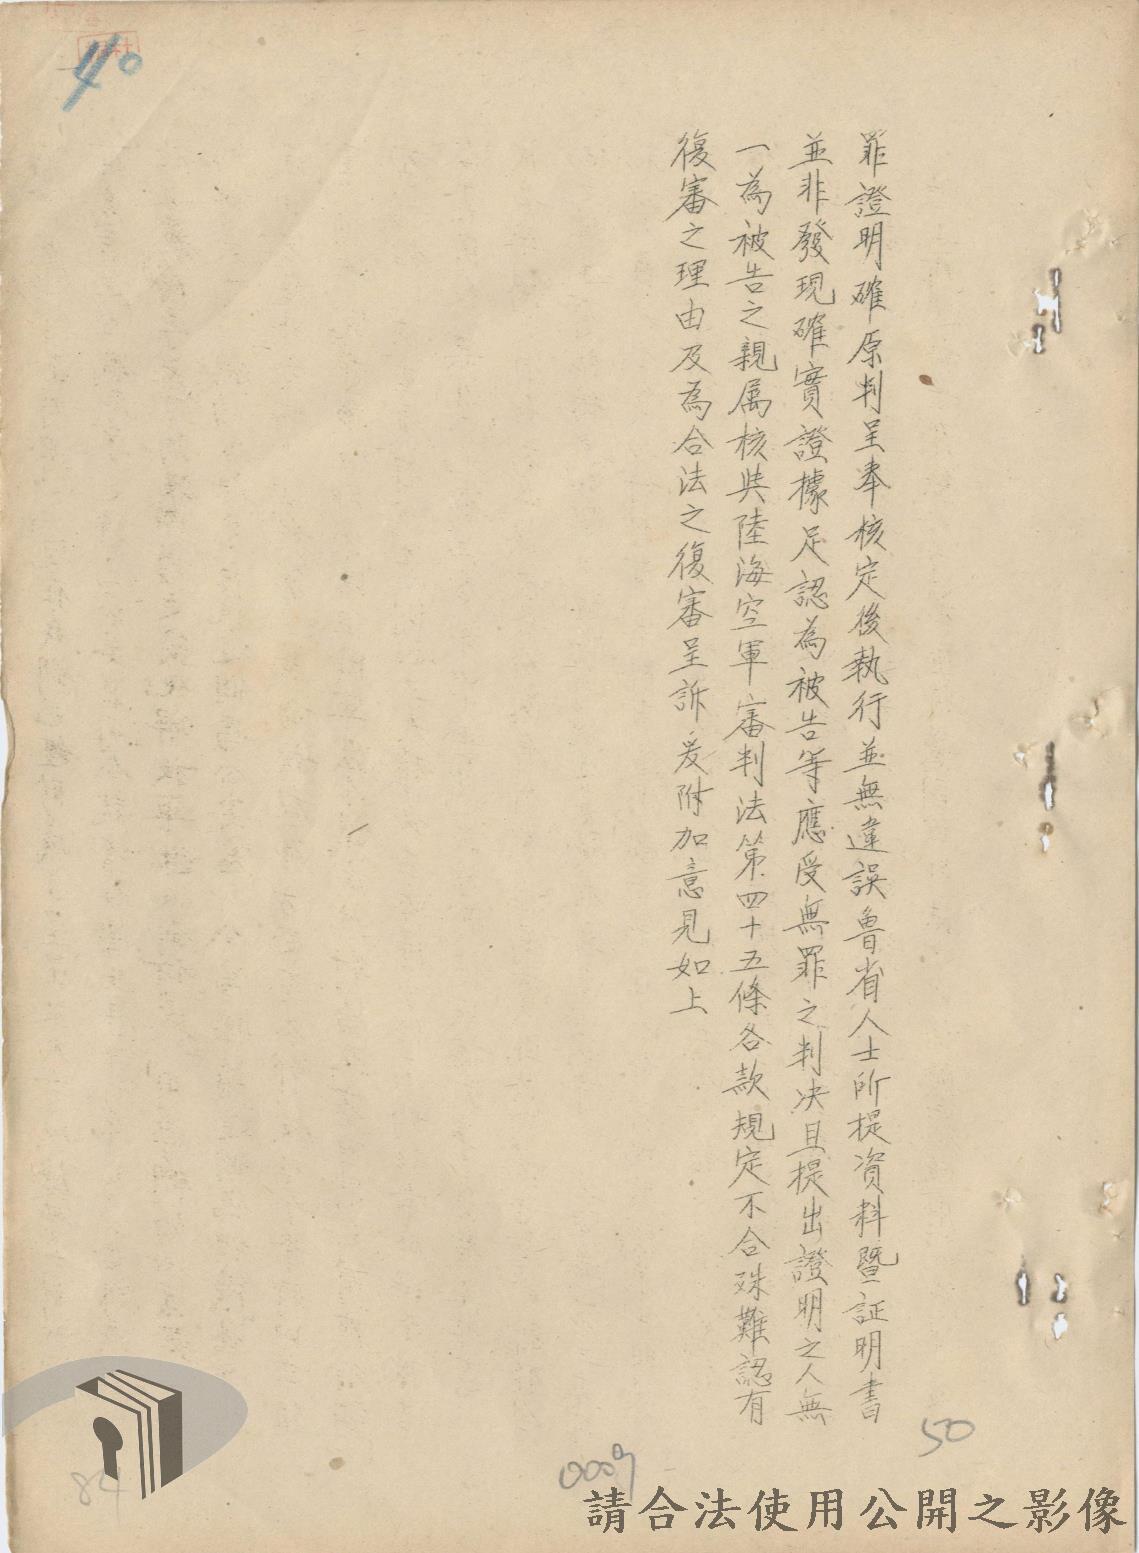 40
罪證明確原判呈奉核定後執行並無違誤魯省人士所提資料暨証明書
並非發現確實證據足認為被告等應受無罪之判决且提出證明之人無
一為被告之親属核與陸海空軍審判法第四十五條各款規定不合殊難認有
復審之理由及為合法之復審呈訴爰附加意見如上
50
84
請合法使用公開之影像